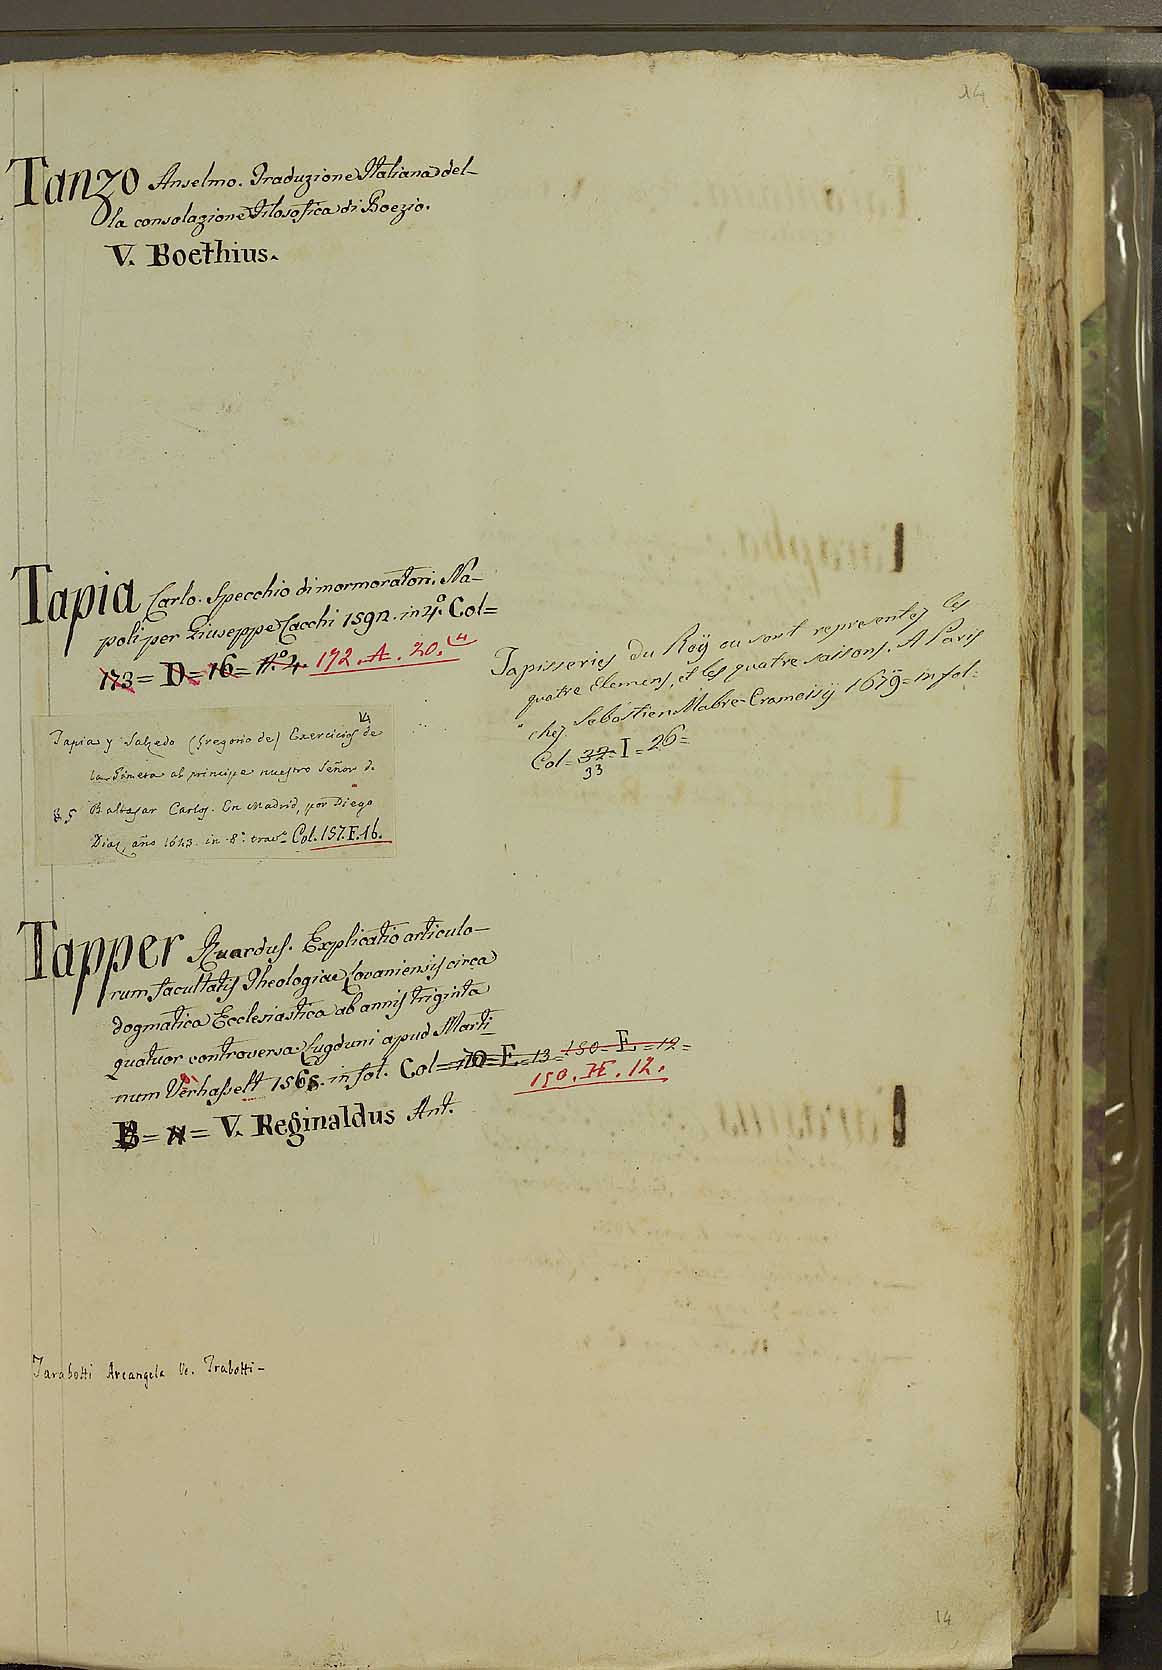 14
Tanzo Anselmo. Traduzione Italiana del-
la consolazione Filosofica di Boezio.
V. Boethius.
Tapia Carlo. Specchio di mormoratori. Na-
poli per Giuseppe Cacchi 1592. in 4.º Col=
173 = D = 16 = n.º 4. 172. A. 20. (4
Tapisseries du Roÿ ou sont representez les
quatre Elemens, et les quatre saisons. A Paris
chez Sebastien Mabre-Cramoisÿ 1679 = in fol =
Col = 32 = I = 26 =
33
14
Tapia y Salzedo (Gregorio de) Exercicios de
la Gineta al principe nuestro Señor d.
Baltasar Carlos. En Madrid, por Diego
Diaz, año 1643. in 8.º trav.º Col. 157. F. 16.
Tapper Ruardus. Explicatio articulo-
rum facultatis Theologiae Lovaniensis circa
dogmatica Ecclesiastica ab annis triginta
quatuor controversa. Lugduni apud Marti
num Verhasselt 1565. in fol. Col = E = 13 = 150 = E = 12 =
150. H. 12.
B = N = V. Reginaldus Ant.
Tarabotti Arcangela Ve. Trabotti -
14